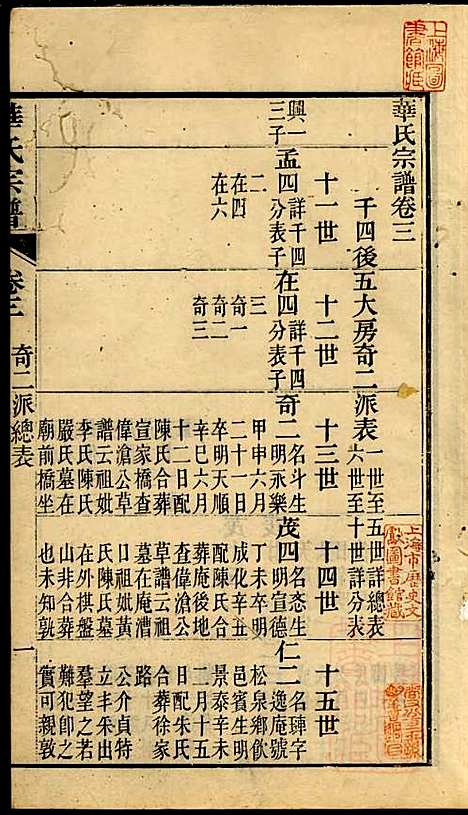 華氏宗譜卷三
千四後五大房奇二派表
一世至五世詳總表
六世至十世詳分表
十一世
十二世
十三世
十四世
十五世
興一
三子
孟四
詳千四
分表子
二
在四
在六
在四
詳千四
分表子
三
奇一
奇二
奇三
奇二
名斗生
明永樂
甲申六月
二十一日
卒明天順
辛巳六月
十二日配
陳氏合葬
宣家橋查
偉滄公草
譜云祖妣
李氏陳氏
嚴氏墓在
廟前橋坐
茂四
名忞生
明宣德
丁未卒明
成化辛丑
配陳氏合
葬庵後
查偉滄公
草譜云祖
墓在庵漕
口祖妣黃
氏陳氏墓
在外棋盤
山非合葬
也未知孰
仁二
名琫字
逸庵號
松泉鄉飲
邑賓生明
景泰辛未
二月十五
日配朱氏
合葬徐家
路
公介貞特
立丰采出
羣望之若
難犯即之
實可親敦
華氏宗譜
卷三
奇二派總表
一
上海圖書館藏
上海市歷史文獻圖書館藏